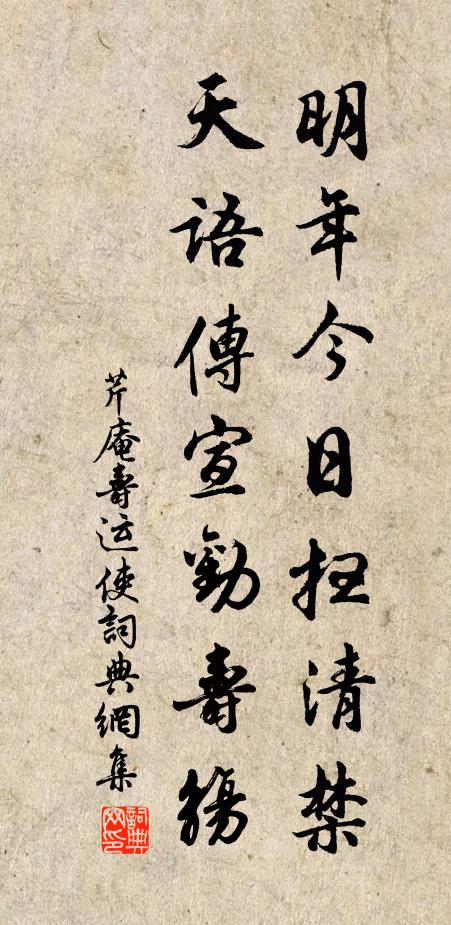 明年今日扭清禁
天語傳宣勸壽觴
芹庵壽运使詞典網集
詞典網印